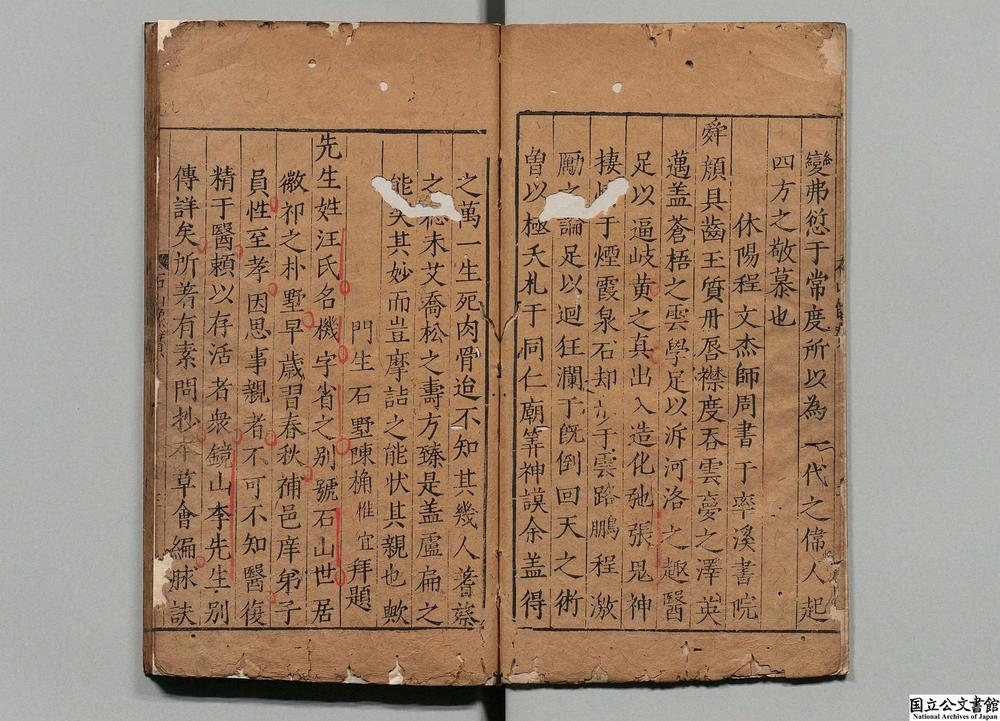 變弗愆于常度所以為一代之偉人起
四方之敬慕也
休陽程文杰師周書于率溪書院
舜顏具齒玉質丹唇襟度吞雲夢之澤英
邁盖蒼梧之雲學足以泝河洛之趣醫
足以逼岐黃之真出入造化弛張鬼神
棲 于煙霞泉石却 于雲路鵬程激
勵之論足以迴狂瀾于既倒回天之術
曽以極夭札于同仁廟筭神謨余盖得
之萬一生死肉骨迨不知其幾人蓍蔡
之 未艾喬松之壽方臻是盖盧扁之
能矣其妙而豈摩詰之能状其親也歟
門生石墅陳桷惟宜拜題
先生姓汪氏名機字省之別號石山世居
徽祁之朴墅早歲習春秋補邑庠弟子
員性至孝因思事親者不可不知醫復
精于醫頼以存活者衆鏡山李先生別
傳詳矣所著有素問抄本草會編脉訣
国立公文書館
National Archives of Japan